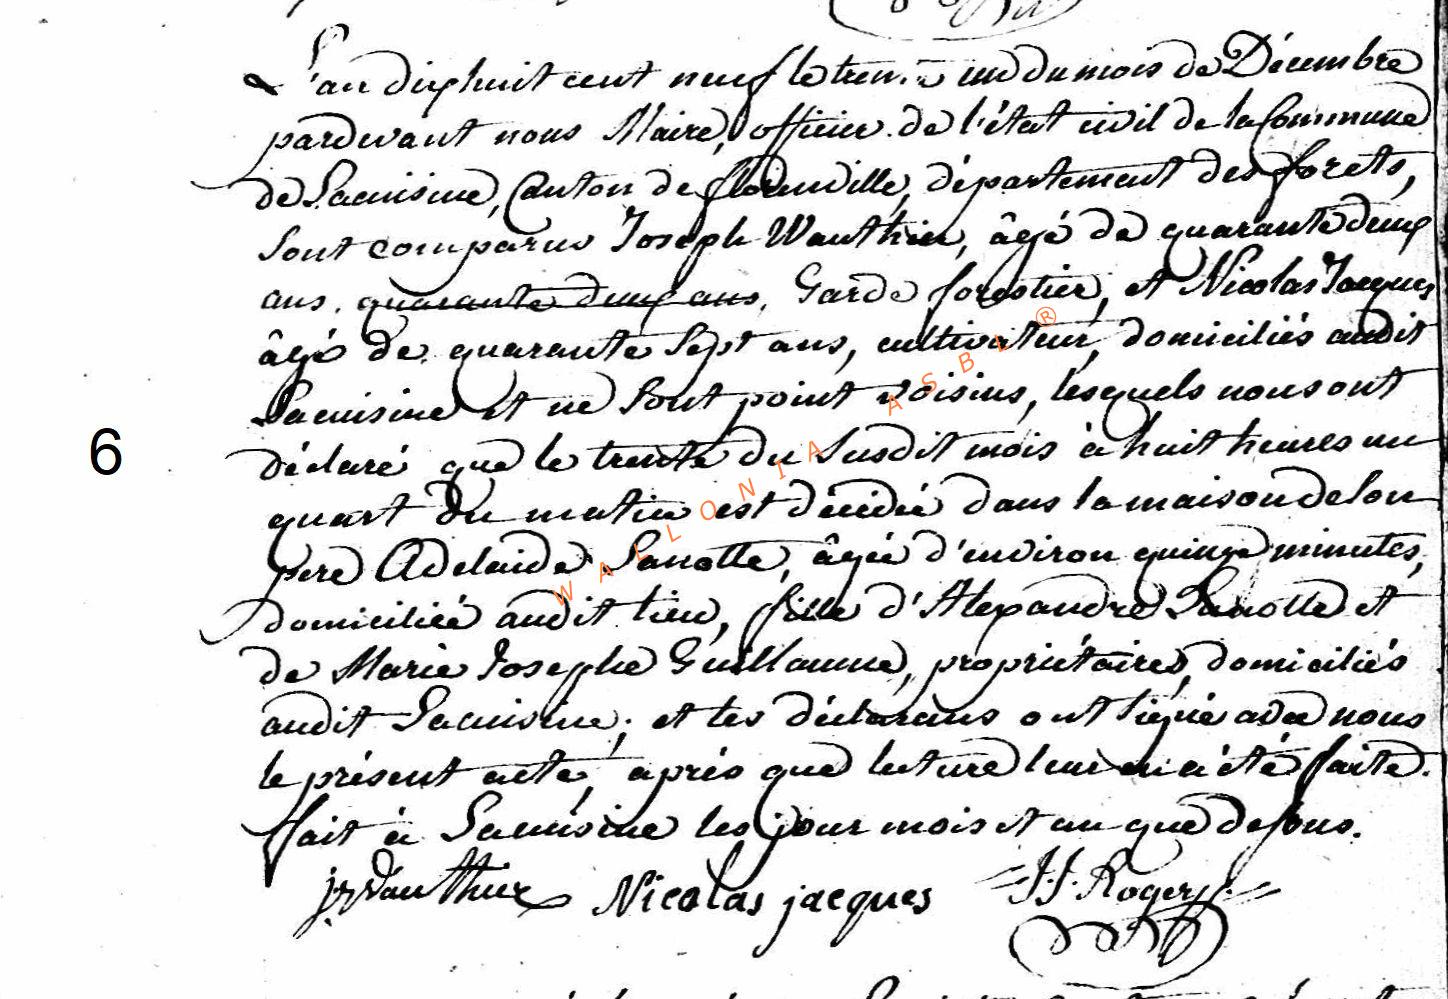 L'an dix huit cent neuf le trente un du mois de Décembre
pardevant nous Maire, officier de l'état civil de la Commune
de Lacuisine, Canton de florenville, département des forets,
sont comparus Joseph Wauthier, âgé de quarante deux
ans, quarante deux ans, Garde forestier, et Nicolas Jacques
âgé de quarante sept ans, cultivateur, domiciliés audit
Lacuisine et ne sont point voisins, lesquels nous ont
6
déclaré que le trente du susdit mois à huit heures un
quart du matin est décédée dans la maison de son
pere Adelaide Lanotte, âgée d'environ quinze minutes,
domiciliée audit lieu, fille d'Alexandre Lanotte et
de Marie Josephe Guillaume, propriétaires, domiciliés
audit Lacuisine; et les déclarans ont signé avec nous
le présent acte, après que lecture leur en a été faite.
fait à Lacuisine les jour mois et an que dessus.
j Wauthier Nicolas jacques J. J. Roger
WALLONIA ASBL ®